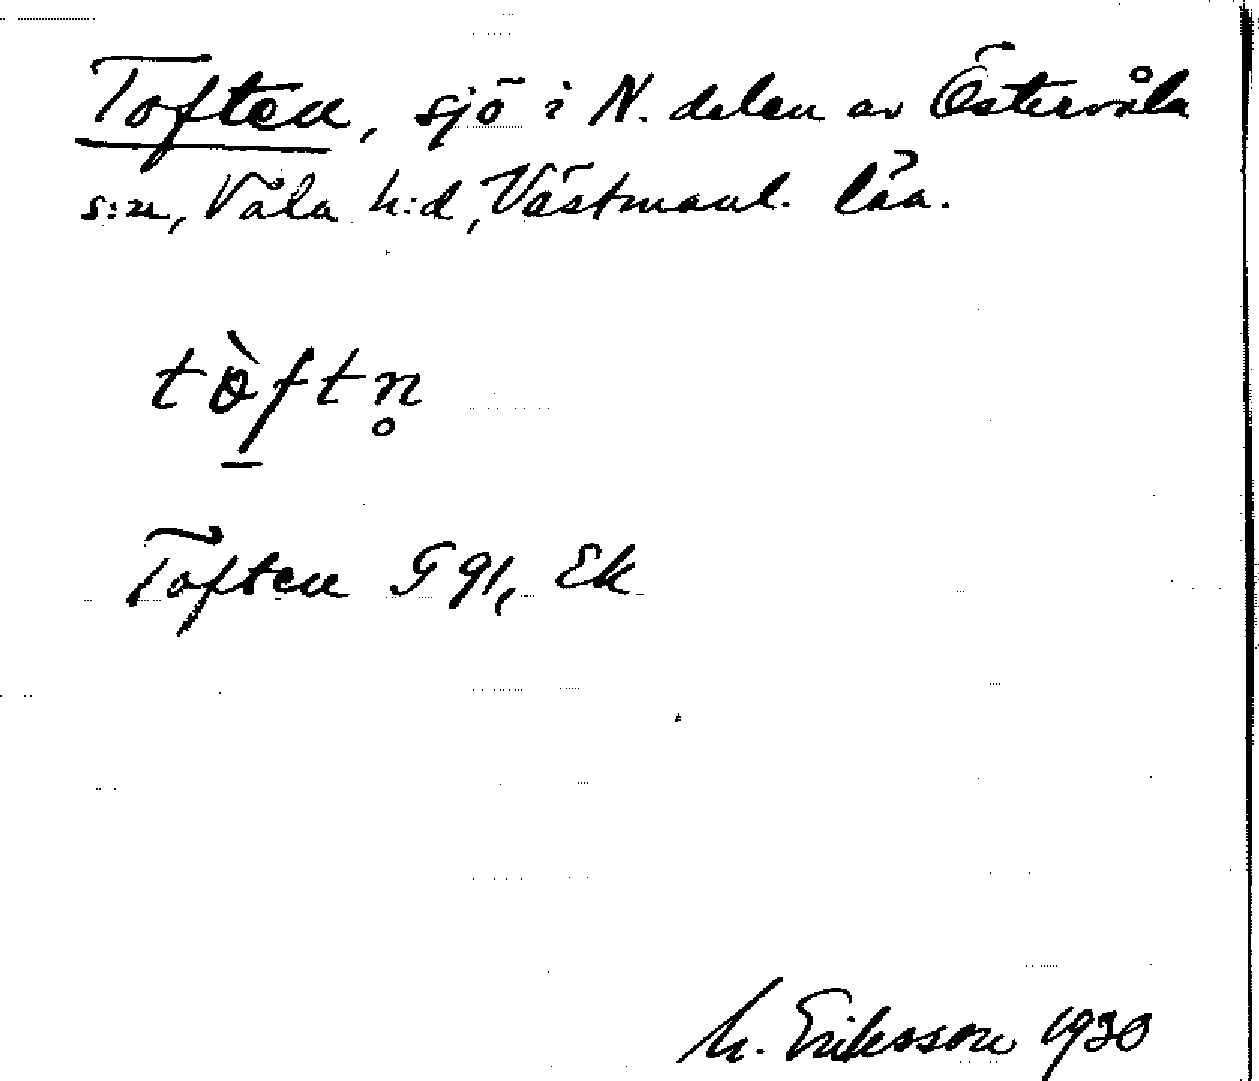 Toften, sjö i N. delen av Östervåla
s:n, Våla h:d, Västmanl. län.
tòftn̥
Toften G 91, Ek
M. Eriksson 1930